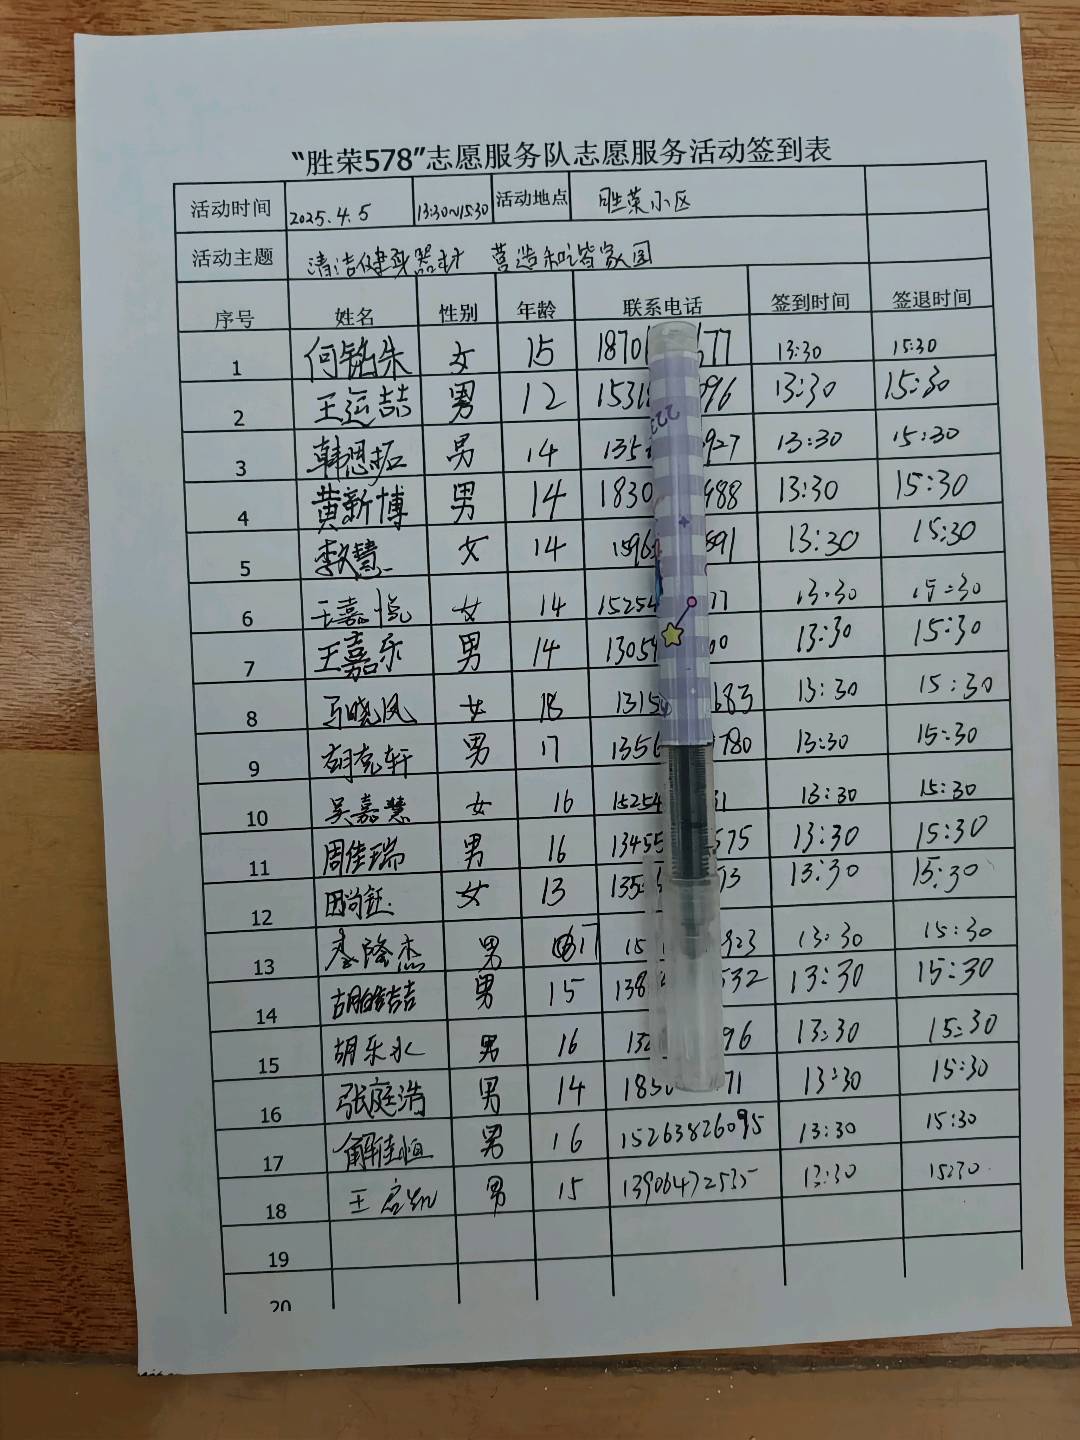 “胜荣578”志愿服务队志愿服务活动签到表
活动时间 2025.4.5 13:30~15:30 活动地点 胜荣小区
活动主题 清洁健身器材 营造和谐家园
序号 姓名 性别 年龄 联系电话 签到时间 签退时间
1 何铭朱 女 15 1870 77 13:30 15:30
2 王运喆 男 12 1531 096 13:30 15:30
3 韩思拓 男 14 135 927 13:30 15:30
4 黄新博 男 14 1830 488 13:30 15:30
5 李文慧 女 14 1596 891 13:30 15:30
6 王嘉悦 女 14 15254 77 13:30 15:30
7 王嘉乐 男 14 13054 00 13:30 15:30
8 马晓凤 女 18 1315 683 13:30 15:30
9 胡克轩 男 17 1356 780 13:30 15:30
10 吴嘉慧 女 16 15254 31 13:30 15:30
11 周佳瑞 男 16 13455 575 13:30 15:30
12 田尚钰 女 13 135 13 13:30 15:30
13 隆杰 男 17 15 923 13:30 15:30
14 胡 男 15 138 532 13:30 15:30
15 胡乐水 男 16 132 96 13:30 15:30
16 张庭浩 男 14 185 71 13:30 15:30
17 解佳恒 男 16 15263826095 13:30 15:30
18 王启凯 男 15 13906472535 13:30 15:30
19
20